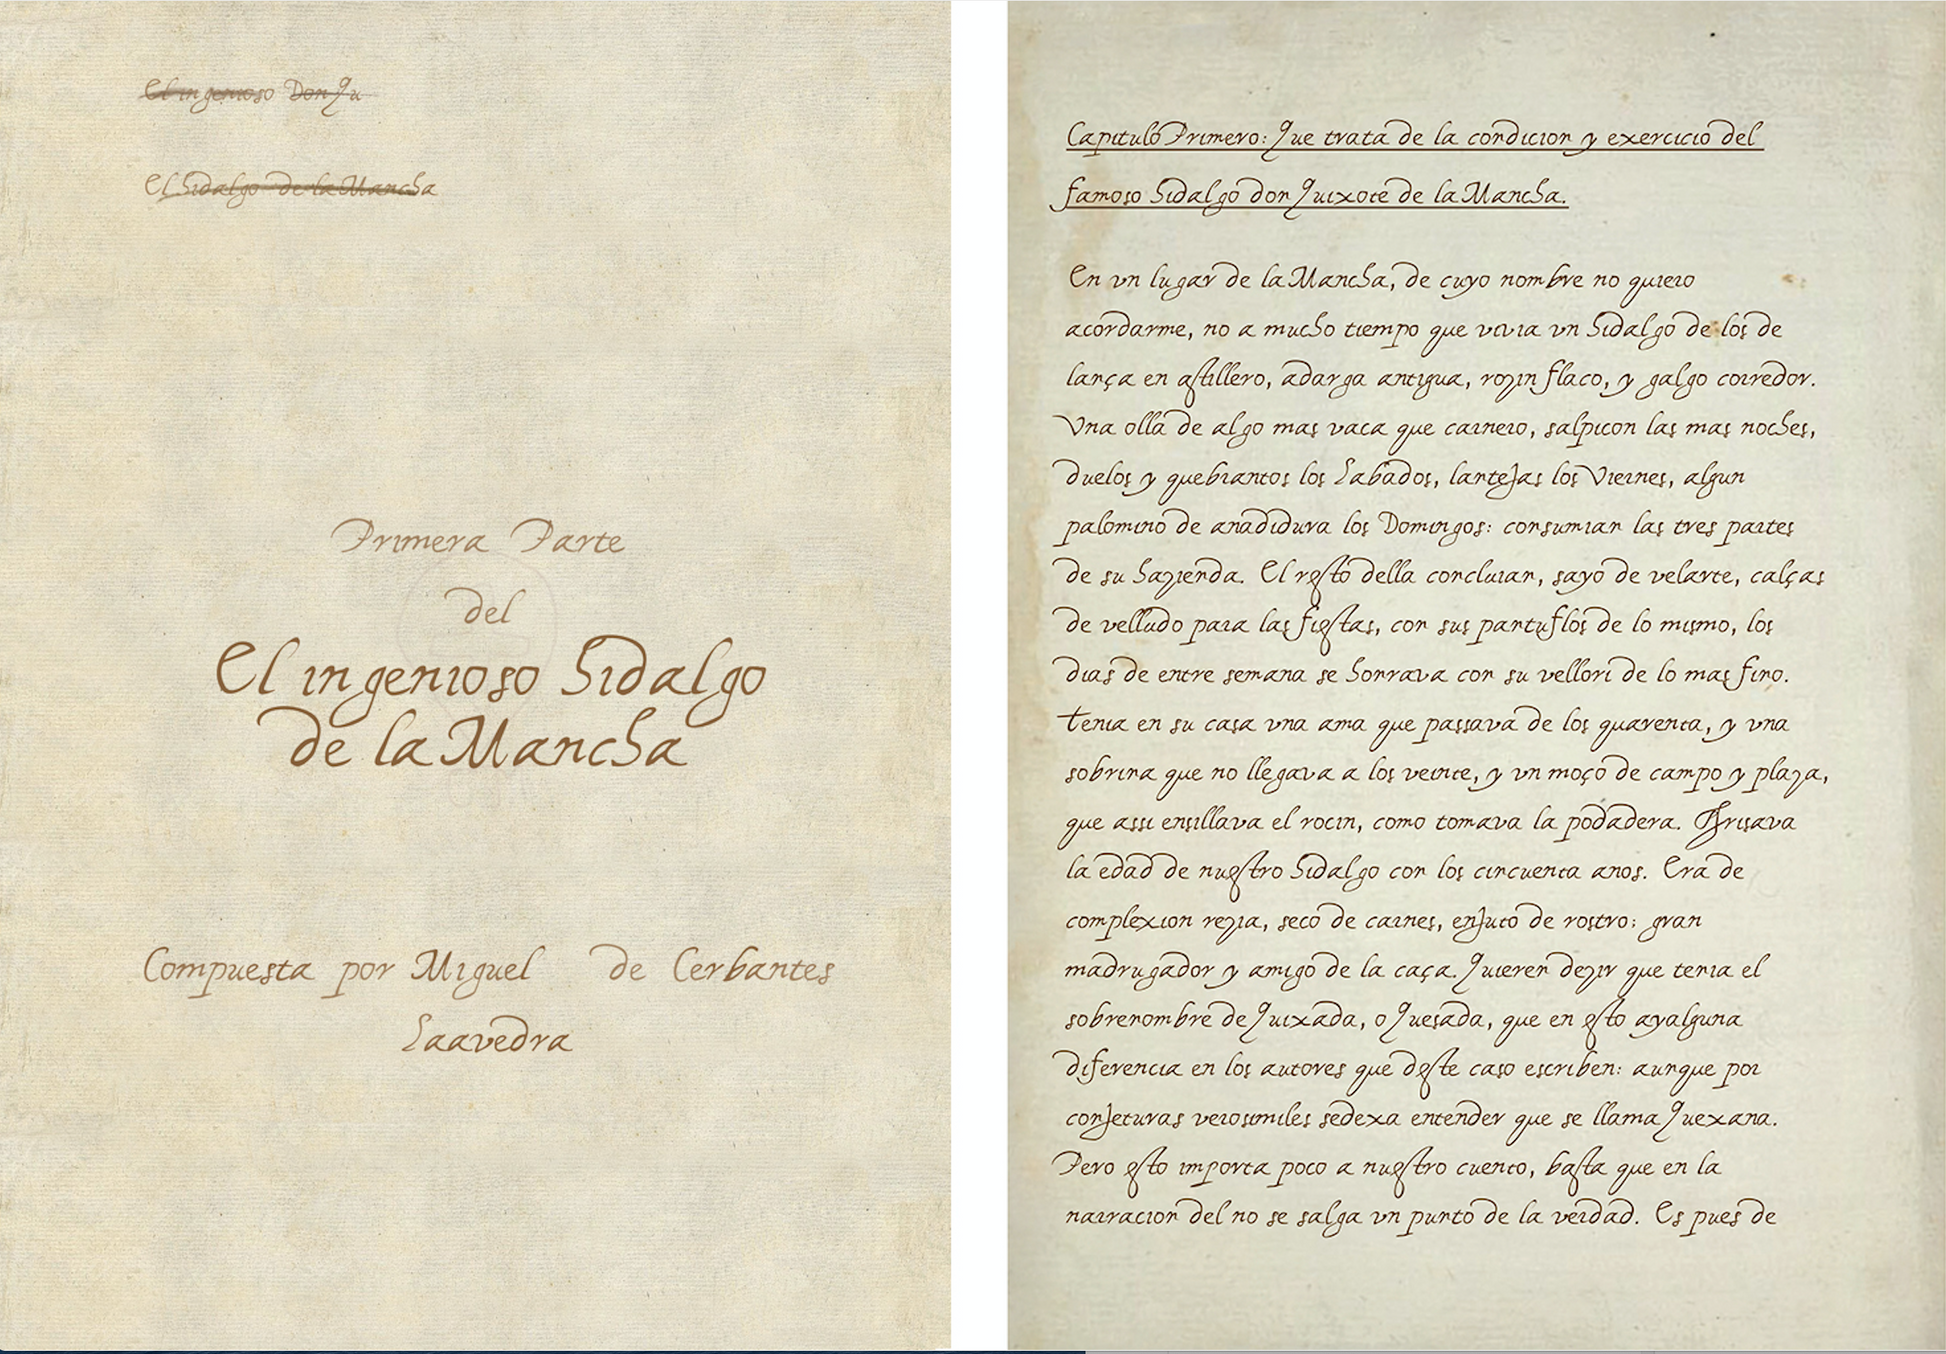 El ingenioso Don Qu
El hidalgo de la Mancha
Primera Parte
del
El ingenioso hidalgo
de la Mancha
Compuesta por Miguel de Cerbantes
Saavedra
Capitulo Primero: Que trata de la condicion y exercicio del
famoso hidalgo don Quixote de la Mancha.
En vn lugar de la Mancha, de cuyo nombre no quiero
acordarme, no a mucho tiempo que vivia vn hidalgo de los de
lança en astillero, adarga antigua, rozin flaco, y galgo corredor.
Vna olla de algo mas vaca que carnero, salpicon las mas noches,
duelos y quebrantos los Sabados, lantejas los Viernes, algun
palomino de anadidura los Domingos: consumian las tres partes
de su hazienda. El resto della concluian, sayo de velarte, calças
de velludo para las fiestas, con sus pantuflos de lo mismo, los
dias de entre semana se honrava con su vellori de lo mas fino.
Tenia en su casa vna ama que passava de los quarenta, y vna
sobrina que no llegava a los veinte, y vn moço de campo y plaza,
que assi ensillava el rocin, como tomava la podadera. Frisava
la edad de nuestro hidalgo con los cincuenta anos. Era de
complexion rezia, seco de carnes, enjuto de rostro: gran
madrugador y amigo de la caça. Quieren dezir que tenia el
sobrenombre de Quixada, o Quesada, que en esto ayalguna
diferencia en los autores que deste caso escriben: aunque por
conjeturas verosimiles sedexa entender que se llama Quexana.
Pero esto importa poco a nuestro cuento, basta que en la
narracion del no se salga vn punto de la verdad. Es pues de